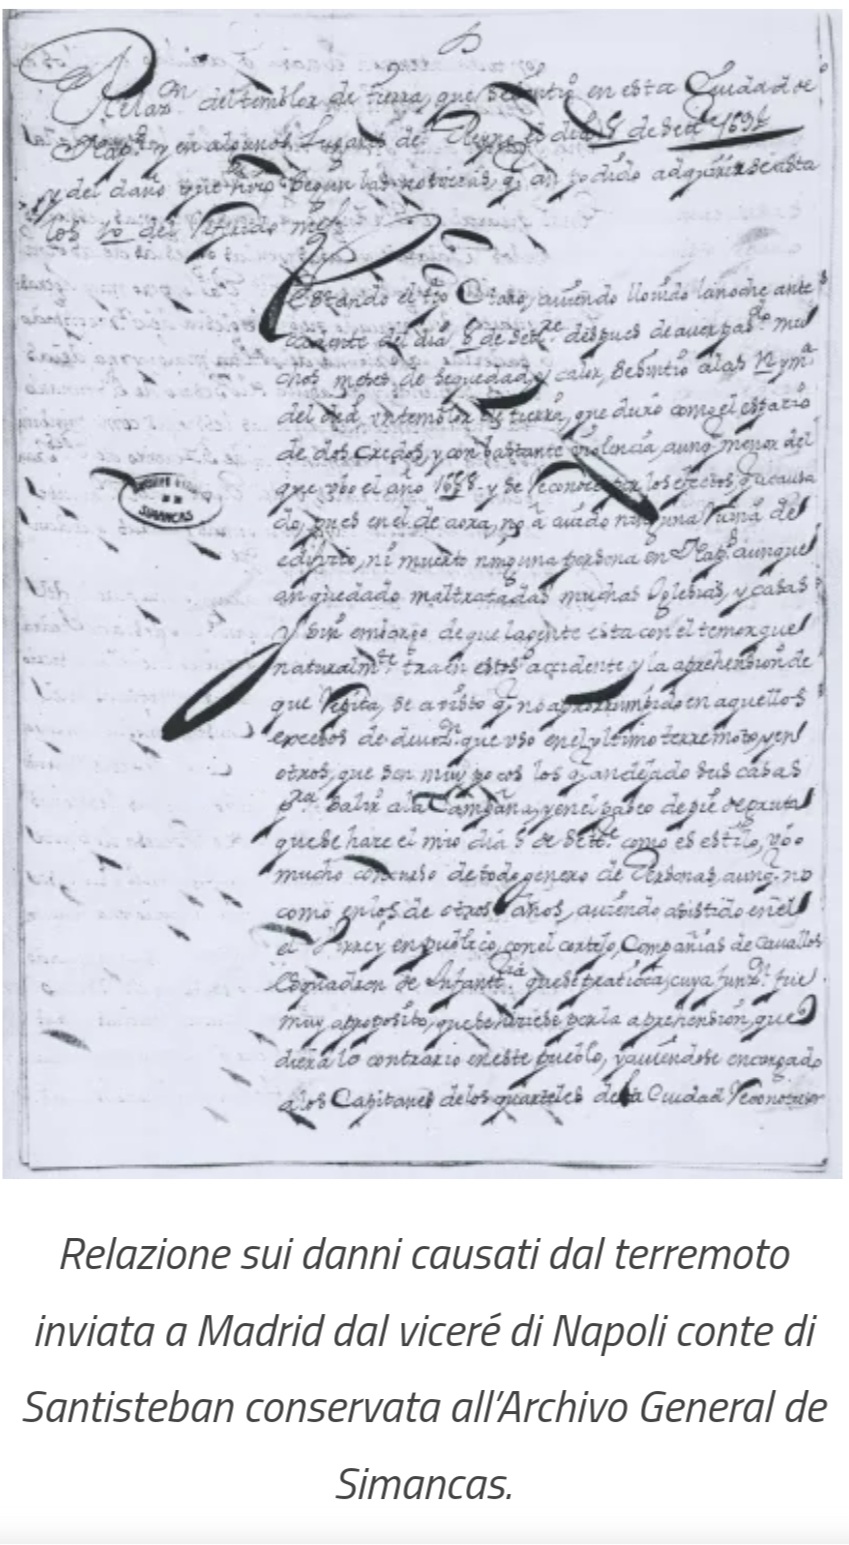 Relaz.on del temblor de tierra, que se sintió en esta Ciudad de
Nap.s y en algunos Lugares del Reyno el dia 8 de Sep.re 1694
y del daño que hizo segun las noticias q. an podido adquirirse asta
los 10 del referido mes
Estando el t.po claro, auiendo llouido la noche ante
cedente del dia 8 de Set.re despues de auer pas.do mu
chos meses de sequedad, y calor, se sintió a las
del dia vn temblor de tierra, que duró como el espacio
de dos Credos, y con bastante violencia aunq. menor del
que vbo el año 1688 y se reconoce por los efectos, q. a causa
do, pues en el de aora, no a auido ninguna ruina de
edifizio, ni muerto ninguna persona en Nap.s aunque
an quedado maltratadas muchas Yglesias, y casas
y sin embargo de que la gente esta con el temor que
naturalm.te traen estos accidente y la aprehension de
que repita, se a visto q. no a prorrumpido en aquellos
excesos de deuoz.n que vbo en el vltimo terremoto, y en
otros, que son muy pocos los q. an dejado sus casas
p.ra salir a la Campaña, y en el paseo de pie de gruta
que se hace el mio dia 8 de Set.re como es estilo, vbo
mucho concurso de todo genero de Personas, aunq. no
como en los de otros años, auiendo asistido en el
el Virrey en publico, con el cortejo, Compañias de Cauallos
Esquadron de Infant.ria que se pratica, cuya funz.n fue
muy aproposito, que se hiziese por la aprehension, que
diera lo contrario en este pueblo, y auiendose encargado
a los Capitanes de los quarteles de la Ciudad reconoties
SIMANCAS
Relazione sui danni causati dal terremoto
inviata a Madrid dal viceré di Napoli conte di
Santisteban conservata all’Archivo General de
Simancas.